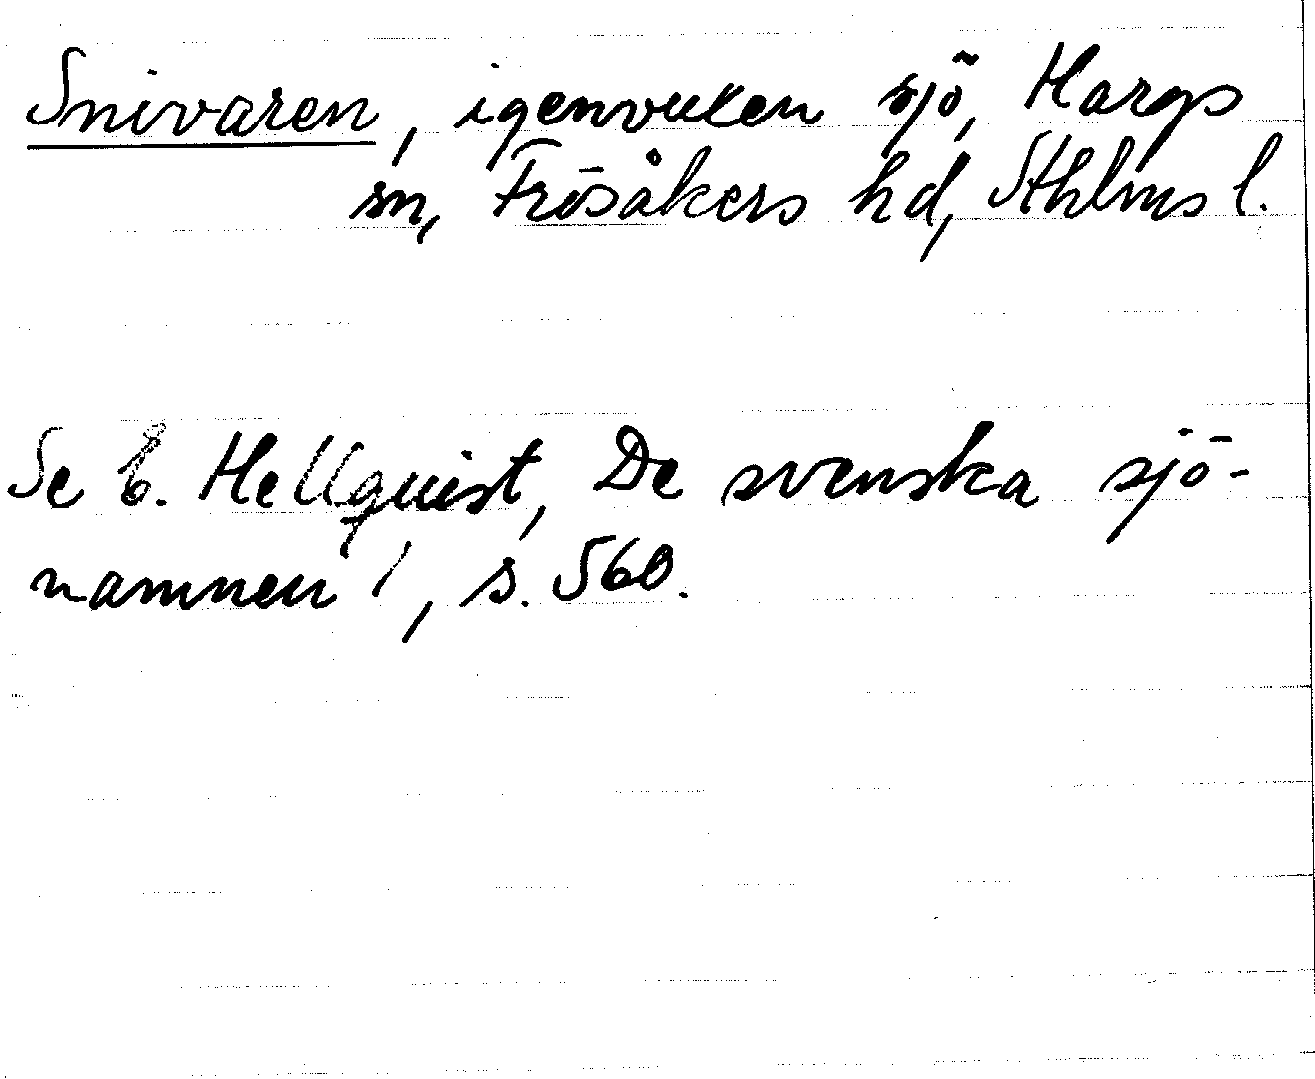 Snivaren, igenvuxen sjö, Hargs
sn, Frösåkers hd, Sthlms l.
Se E. Hellquist, De svenska sjö-
namnen 1, s. 560.